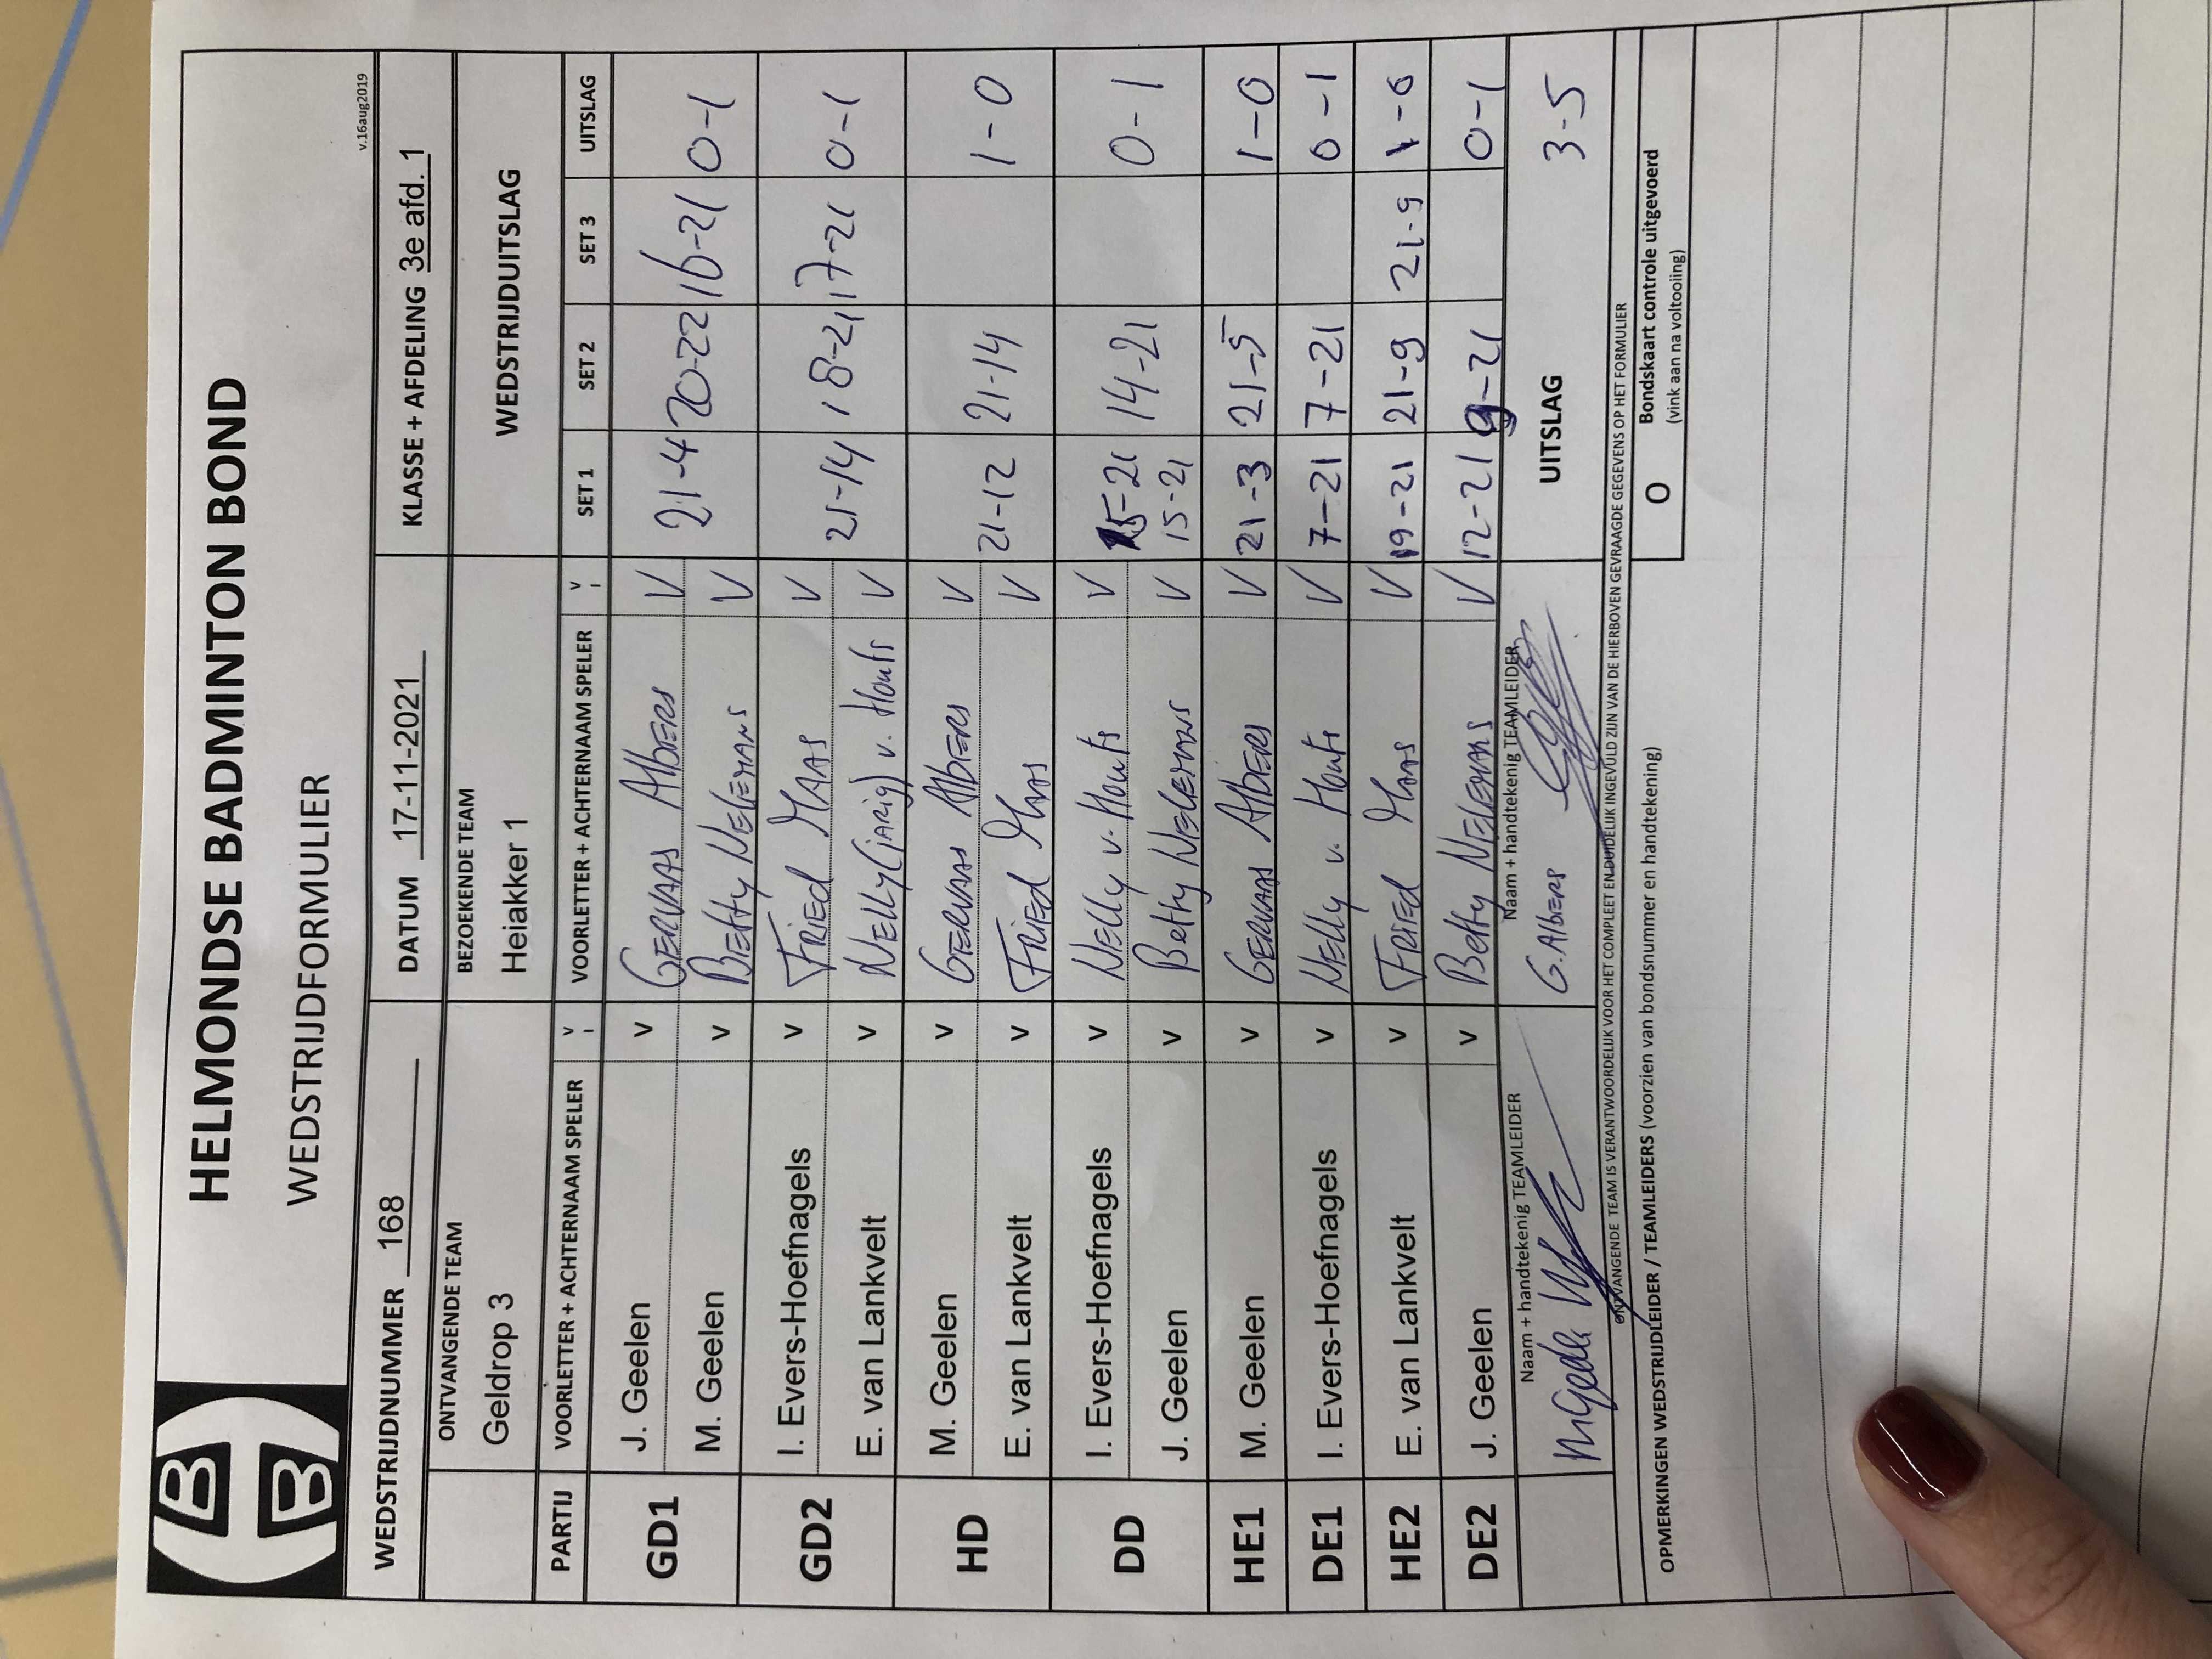 HELMONDSE BADMINTON BOND
WEDSTRIJDFORMULIER
v.16aug2019
WEDSTRIJDNUMMER 168 DATUM 17-11-2021 KLASSE + AFDELING 3e afd. 1
ONTVANGENDE TEAM BEZOEKENDE TEAM WEDSTRIJDUITSLAG
Geldrop 3 Heiakker 1
PARTIJ VOORLETTER + ACHTERNAAM SPELER V VOORLETTER + ACHTERNAAM SPELER V SET 1 SET 2 SET 3 UITSLAG
GD1 J. Geelen v Gervaas Albers V 21-4 20-22 16-21 0-1
M. Geelen v Betty Nelemans V
GD2 I. Evers-Hoefnagels v Fried Maas V 21-14 18-21 17-21 0-1
E. van Lankvelt v Nelly (jarig) v. Houts V
HD M. Geelen v Gervaas Albers V 21-12 21-14 1-0
E. van Lankvelt v Fried Maas V
DD I. Evers-Hoefnagels v Nelly v. Houts V 15-21 14-21 0-1
J. Geelen v Betty Nelemans V 15-21
HE1 M. Geelen v Gervaas Albers V 21-3 21-5 1-0
DE1 I. Evers-Hoefnagels v Nelly v. Houts V 7-21 7-21 0-1
HE2 E. van Lankvelt v Fried Maas V 19-21 21-9 21-9 1-0
DE2 J. Geelen v Betty Nelemans V 12-21 9-21 0-1
Naam + handtekenig TEAMLEIDER Naam + handtekenig TEAMLEIDER UITSLAG 3-5
G. Albers
ONTVANGENDE TEAM IS VERANTWOORDELIJK VOOR HET COMPLEET EN DUIDELIJK INGEVULD ZIJN VAN DE HIERBOVEN GEVRAAGDE GEGEVENS OP HET FORMULIER
OPMERKINGEN WEDSTRIJDLEIDER / TEAMLEIDERS (voorzien van bondsnummer en handtekening) O Bondskaart controle uitgevoerd
(vink aan na voltooiing)